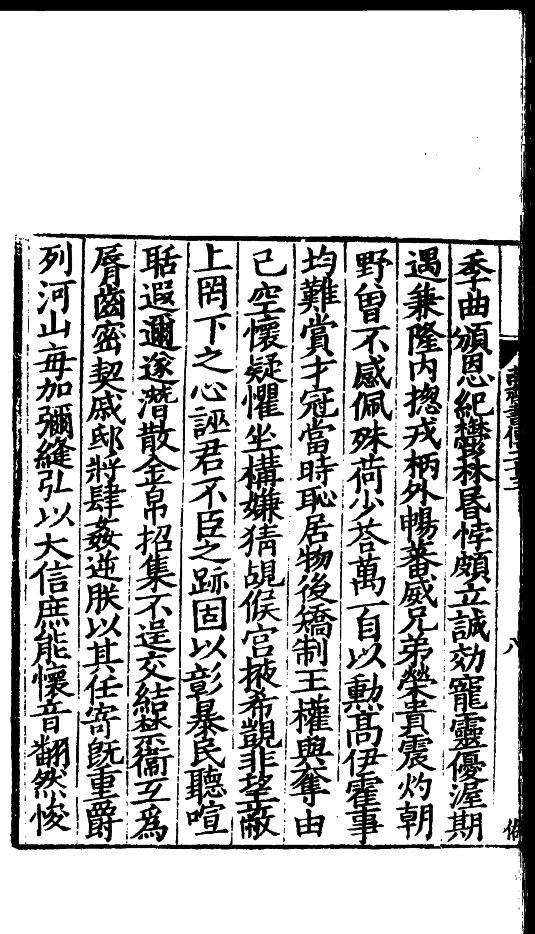 季曲頒恩紀鬱林昬悖頗立誠効寵靈優渥期
遇兼隆内摠戎柄外暢蕃威兄弟榮貴震灼朝
野曽不感佩殊荷少荅萬一自以勲髙伊霍事
均難賞才冠當時恥居物後矯制王權與奪由
己空懷疑懼坐構嫌猜覘候宫掖希覬非望蔽
上罔下之心誣君不臣之跡固以彰暴民聽喧
聒遐邇遂潜散金帛招集不逞交結禁衛互為
脣齒密契戚邸將肆姦逆朕以其任寄既重爵
列河山毎加彌縫弘以大信庶能懷音翻然悛
八